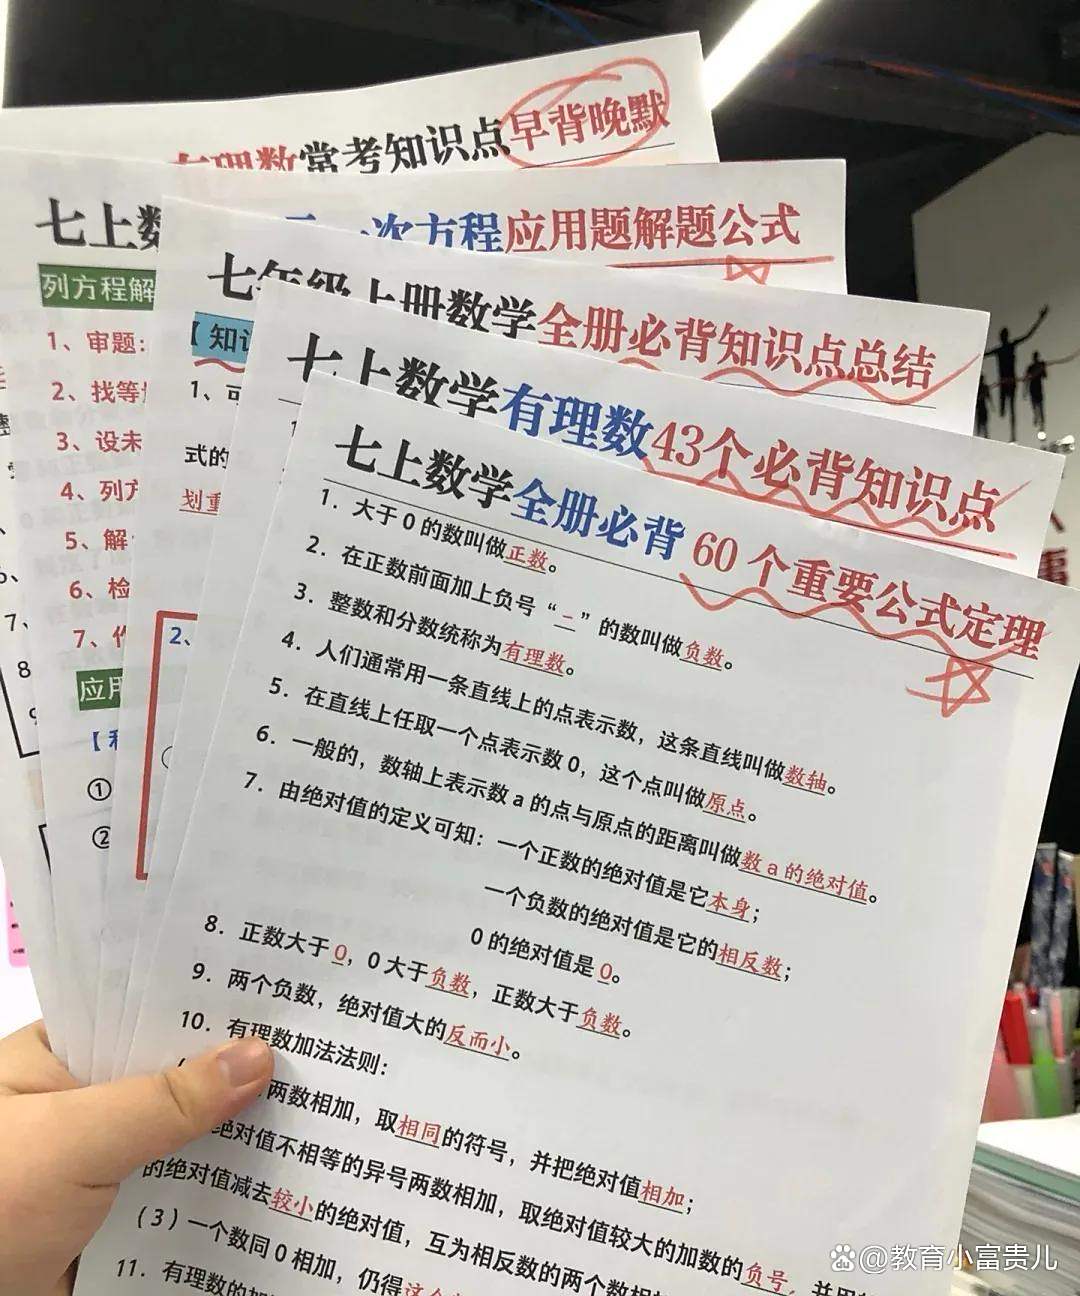 有理数常考知识点早背晚默
七上数
一次方程应用题解题公式
列方程解
1、审题:
2、找等
3、设未
4、列方
5、解
6、检
7、作
应用
①
②
七年级上册数学全册必背知识点总结
【知识
1、可
式的
划重
2、
七上数学有理数43个必背知识点
七上数学全册必背 60 个重要公式定理
1. 大于 0 的数叫做正数。
2. 在正数前面加上负号“－”的数叫做负数。
3. 整数和分数统称为有理数。
4. 人们通常用一条直线上的点表示数，这条直线叫做数轴。
5. 在直线上任取一个点表示数 0，这个点叫做原点。
6. 一般的，数轴上表示数 a 的点与原点的距离叫做数 a 的绝对值。
7. 由绝对值的定义可知：一个正数的绝对值是它本身；
一个负数的绝对值是它的相反数；
0 的绝对值是 0。
8. 正数大于 0，0 大于负数，正数大于负数。
9. 两个负数，绝对值大的反而小。
10. 有理数加法法则：
两数相加，取相同的符号，并把绝对值相加；
绝对值不相等的异号两数相加，取绝对值较大的加数的负号，并用
的绝对值减去较小的绝对值，互为相反数的两个数相
（3）一个数同 0 相加，仍得这个
11. 有理数的加
@教育小富贵儿